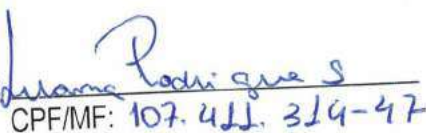 Luana Rodrigues
CPF/MF: 107.411.314-47